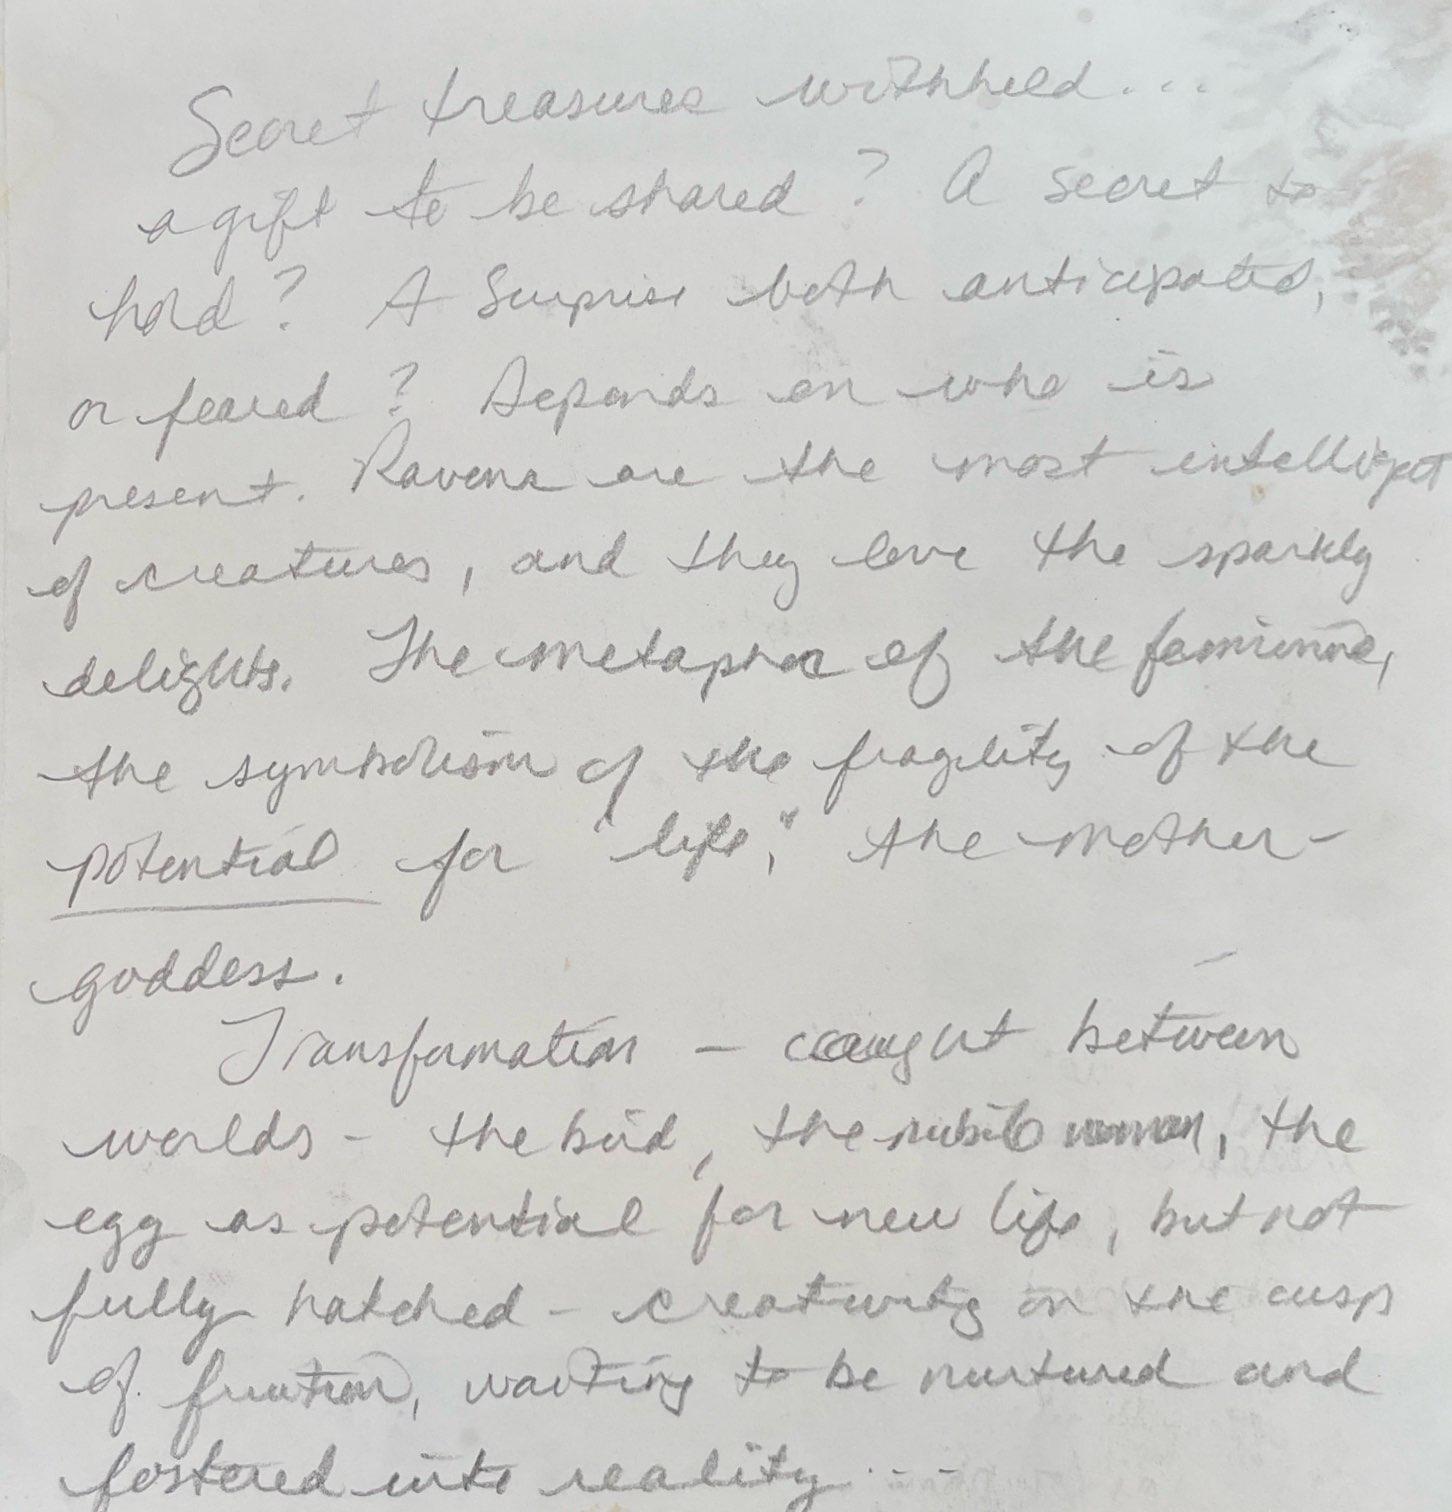 Secret treasures withheld...
a gift to be shared? A secret to
hold? A surprise both anticipated,
or feared? Depends on who is
present. Ravens are the most intelligent
of creatures, and they love the sparkly
delights. The metaphor of the feminine,
the symbolism of the fragility of the
potential for "life," the mother-
goddess.
Transformation - caught between
worlds - the bird, the nubile woman, the
egg as potential for new life, but not
fully hatched - creativity on the cusp
of fruition, waiting to be nurtured and
fostered into reality...